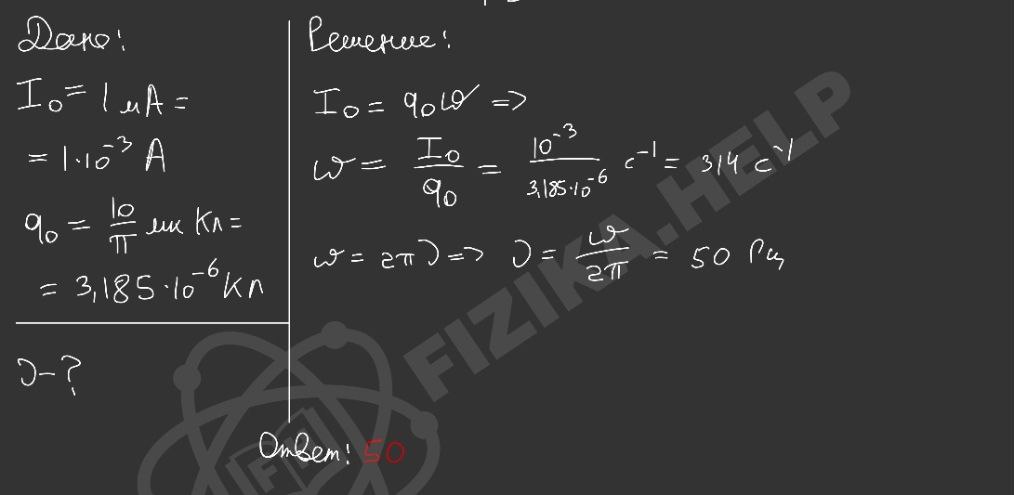 Дано:
I₀ = 1 мА =
= 1·10⁻³ А
q₀ = 10/π мк Кл =
= 3,185·10⁻⁶ Кл
ν - ?
Решение:
I₀ = q₀ω =>
ω = I₀/q₀ = 10⁻³/3,185·10⁻⁶ с⁻¹ = 314 с⁻¹
ω = 2πν => ν = ω/2π = 50 Гц
Ответ: 50
FIZIKA.HELP